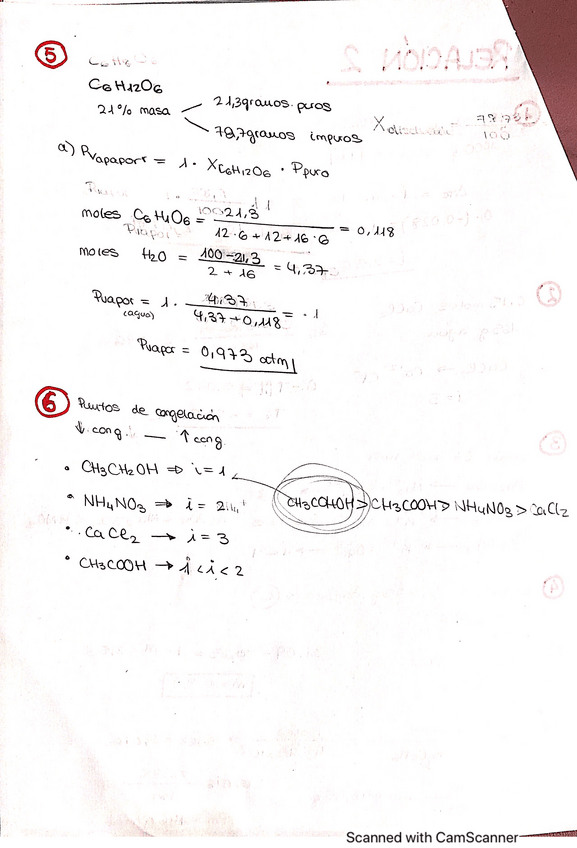 5
C6H12O6
21% masa
21,3 gramos puros
78,7 gramos impuros
a) Pvapor = 1 · XC6H12O6 · Ppuro
moles C6H12O6 = 21,3 / 12·6+12+16·6 = 0,118
moles H2O = 100-21,3 / 2+16 = 4,37
Pvapor (agua) = 1 · 4,37 / 4,37+0,118 = · 1
Pvapor = 0,973 atm
6 Puntos de congelación
↓ cong. — ↑ cong.
• CH3CH2OH ⇒ i = 1
• NH4NO3 ⇒ i = 2
CH3COOH > NH4NO3 > CaCl2
• CaCl2 → i = 3
• CH3COOH → 1 < i < 2
Scanned with CamScanner